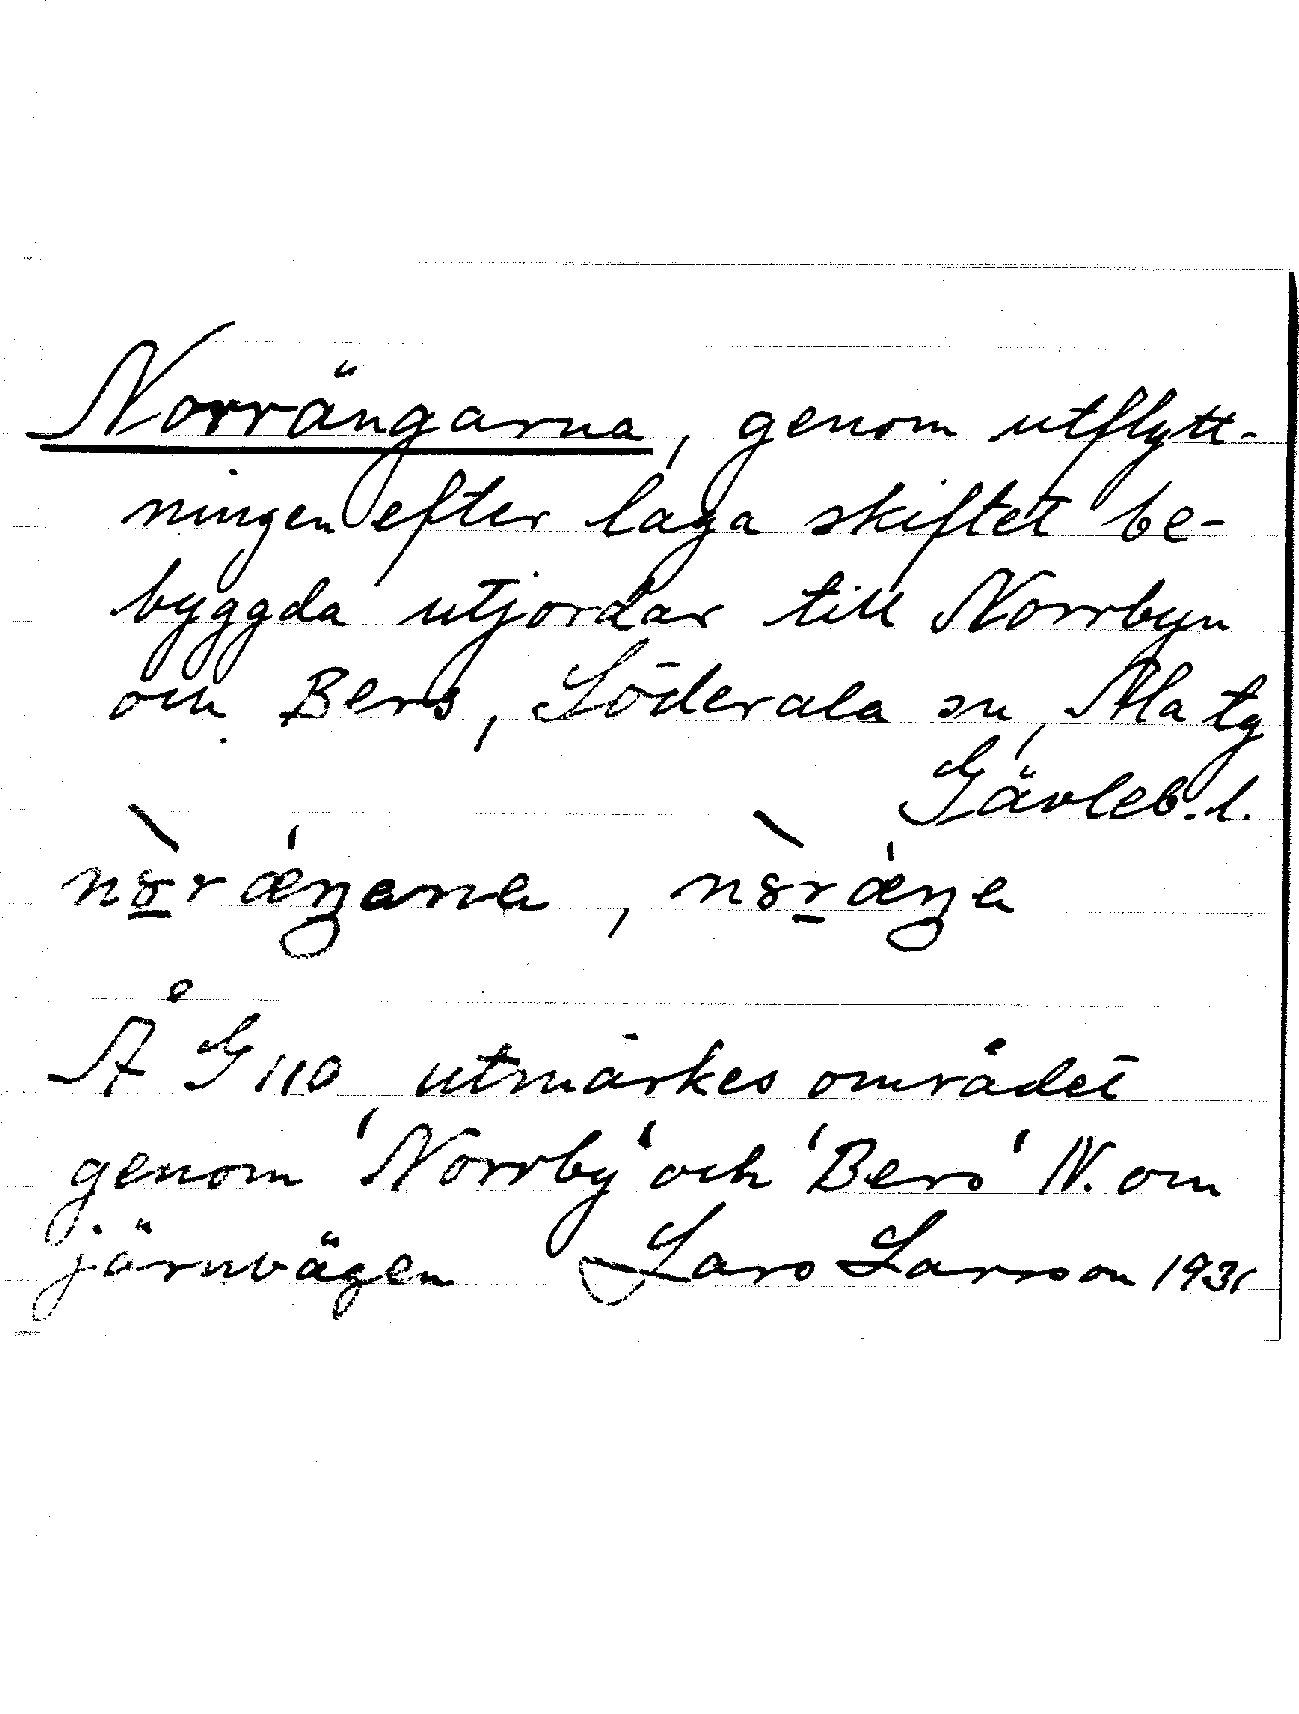 Norrängarna, genom utflytt-
ningen efter laga skiftet be-
byggda utjordar till Norrbyn
och Bers, Söderala sn, Ala tg
Gävleb. l.
Å G 110, utmärkes området
genom 'Norrby' och 'Bers' N. om
järnvägen Lars Larsson 1931